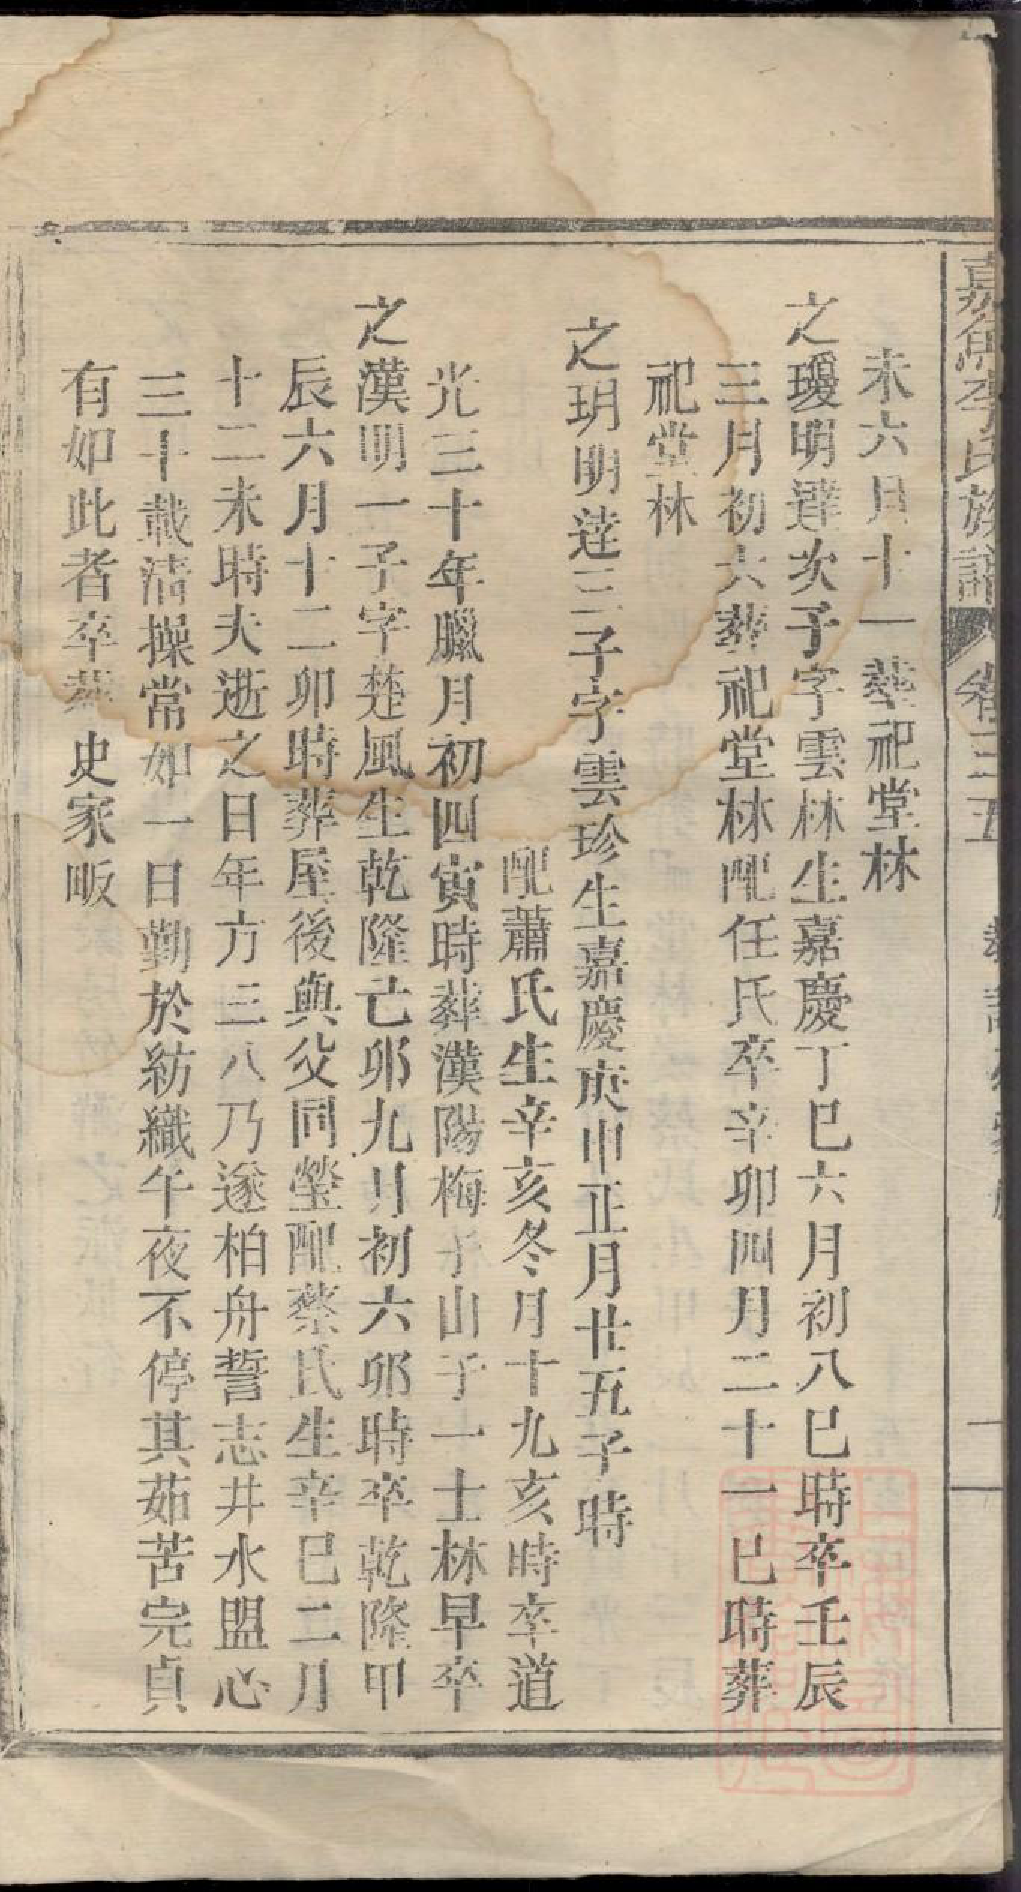 嘉魚李氏族譜 卷三五
未六月十一葬祀堂林
之瑷明達次子字雲林生嘉慶丁巳六月初八巳時卒壬辰
三月初六葬祀堂林配任氏卒辛卯四月二十一巳時葬
祀堂林
之玥明達三子字雲珍生嘉慶庚申正月廿五子時
配蕭氏生辛亥冬月十九亥時卒道
光三十年臘月初四寅時葬漢陽梅子山子一士林早卒
之漢明一子字楚風生乾隆己卯九月初六卯時卒乾隆甲
辰六月十二卯時葬屋後與父同瑩配蔡氏生辛巳二月
十二未時夫逝之日年方三八乃遂柏舟誓志井水盟心
三十載清操常如一日勤於紡織午夜不停其茹苦完貞
有如此者卒葬史家畈